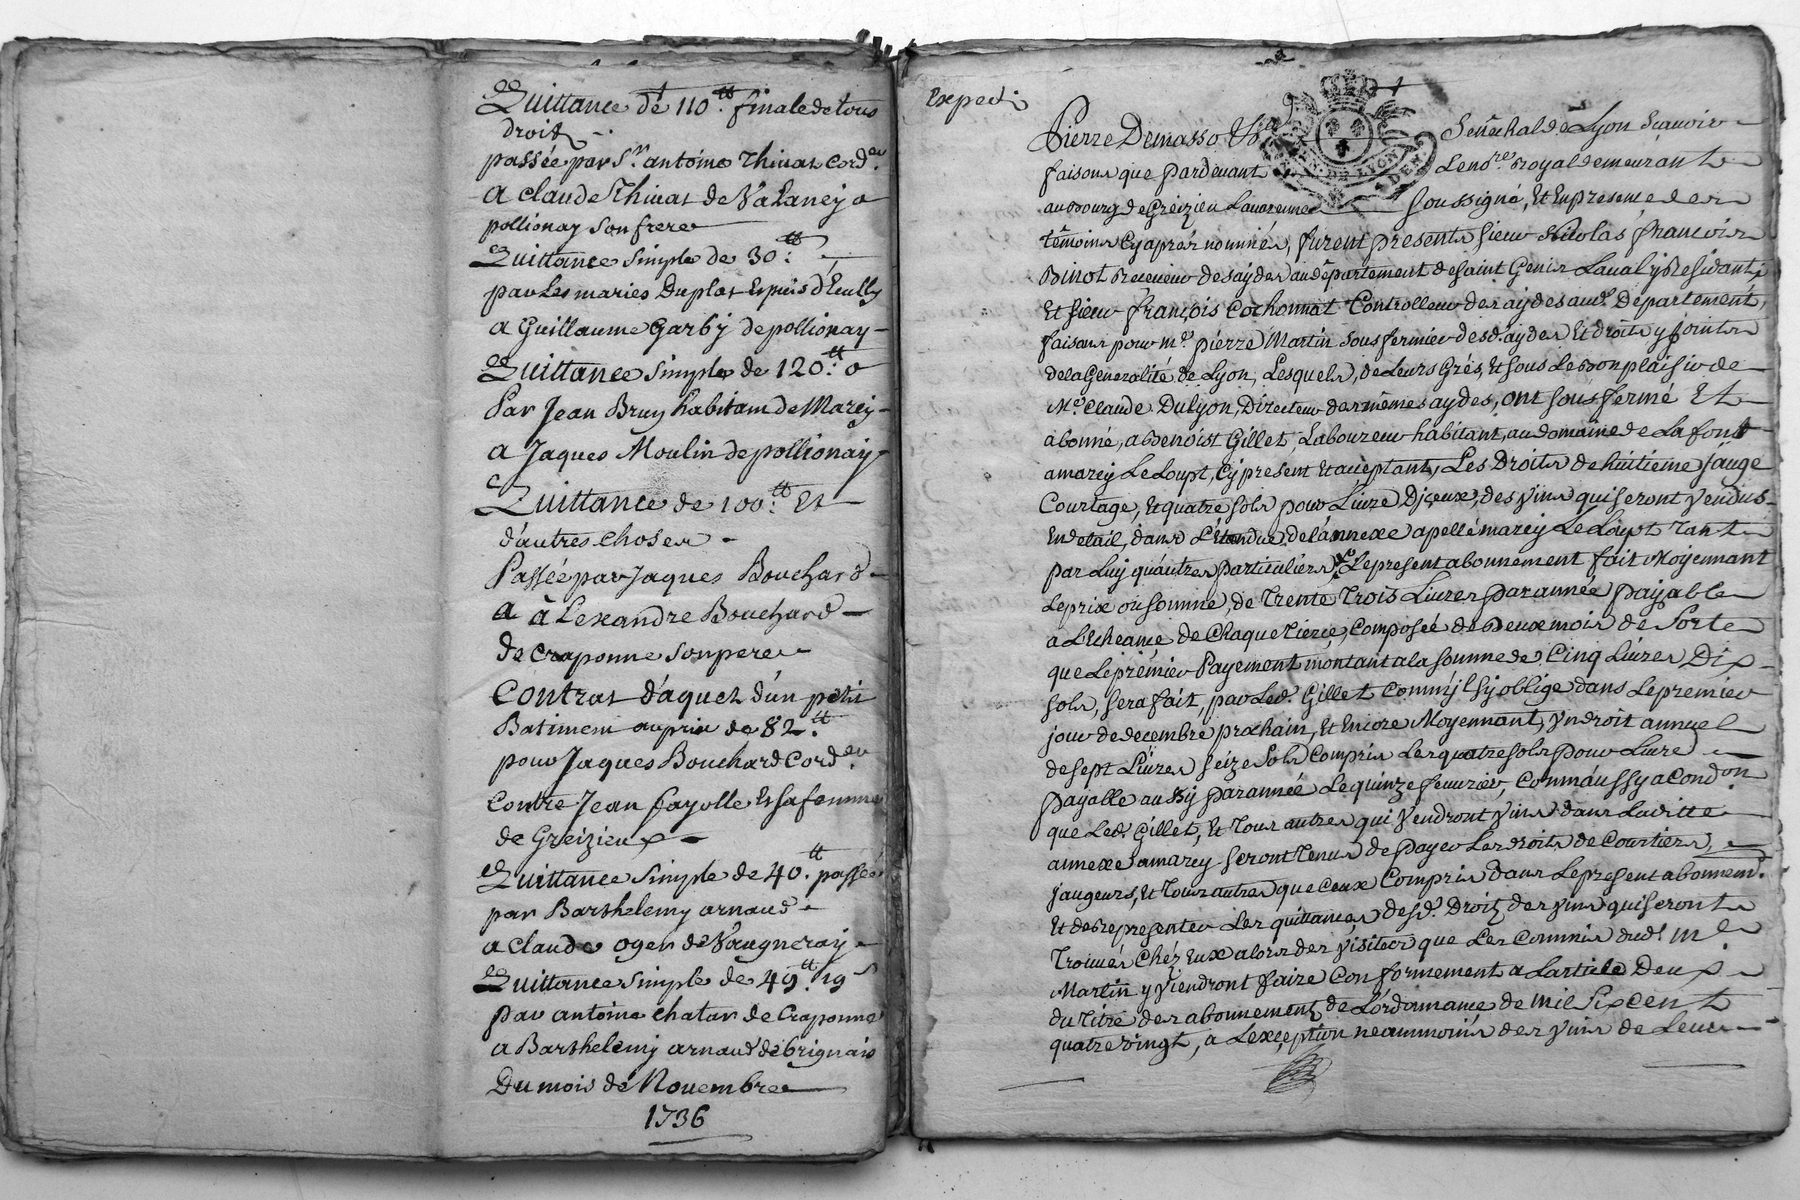 Quittance de 110.tt finale de tous
droits
passée par Sr. antoine Thiuas cord.er
A claude Thiuas de Valaney a
pollionay son frere
Quittance simple de 30.tt
par Les maries Duplat Espuis d'Ecully
a Guillaume Garby de pollionay
Quittance simple de 120.tt
Par Jean Bruy habitam de Marcy
a Jaques Moulin de pollionay
Quittance de 100.tt Et
d'autres choses
Passée par Jaques Bouchard
a aLexandre Bouchard
de Craponne son pere
Contrat d'aquet d'un petit
Batiment au prix de 82.tt
pour Jaques Bouchard Cord.er
Contre Jean fayolle Et sa femme
de Greizieu
Quittance simple de 40.tt passée
par Barthelemy arnaud
a claude oger de Vaugneray
Quittance simple de 49.tt 19 s
par antoine chatar de Craponne
a Barthelemy arnaud de brignais
Du mois de Nouembre
1736
Expedi
Pierre Demasso Senéchal de Lyon Scauoir
faisons que pardeuant Le no.re Royal demeurant
au bourg de Greizieu Lauarenne Soussigné, Et En presence des
témoins cy aprés nommés, furent presents sieur Nicolas françois
Binot Receueur des aydes au département de saint Genis Laual y Residant,
Et sieur françois Cochonnat Controlleur des aydes aud. Département,
faisans pour m.e pierre Martin sous fermier desd. aydes Et droits y joints
de la Generalité de Lyon, Lesquels, de Leurs Grés, Et sous Le bon plaisir de
M.e claude Dulyon, Directeur des mêmes aydes, ont sous fermé Et
abonné, a Benoist Gillet, Laboureur habitant, au domaine de La font
a marcy Le Loupt, cy present Et acceptant, Les Droits de huitieme Jauge
Courtage, Et quatre sols pour Liure Diceux, des vins qui seront vendus
En detail, dans L'Etendue de l'annexe apellé marcy Le Loupt tant
par Luy qu'autres particuliers, Le present abonnement fait Moyennant
Le prix ou somme, de Trente Trois Liures par année payable
a L'Echeance de Chaque Tierce, Composée de Deux mois de Sorte
que Le premier Payement montant a la somme de Cinq Liures Dix
sols, sera fait, par Led. Gillet Comm'il s'y oblige dans Le premier
jour de decembre prochain, Et Encore Moyennant, vn droit annuel
de sept Liures seize sols Compris Les quatre sols pour Liure
payable aussy par année Le quinze feurier, Comm'aussy a Condon
que Led. Gillet, Et Tous autres qui vendront vins dans Laditte
annexe a marcy seront Tenus de payer Les Droits de Courtiers,
jaugeurs, Et Tous autres que Ceux Compris Dans Le present abonnem.t
Et de representer Les quittances desd. Droits des vins qui seront
Trouués Chéz Eux alors des visites que Les Commis dud. m.e
Martin y viendront faire Conformement a L'article Deux
du titre des abonnements de L'ordonnance de mil Six Cent
quatre vingt, a L'exception neammoins des vins de Leur